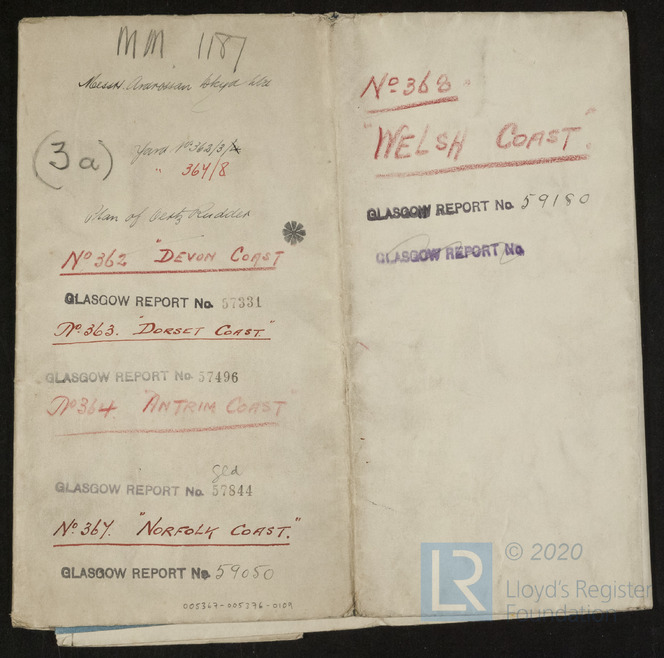 MM 1187
Messrs. Ardrossan Dkyd Ltd
(3a)
Yard Nº 362/3/4
" 367/8
Plan of Oertz Rudder
Nº 362 "DEVON COAST
GLASGOW REPORT No. 57331
Nº 363. "DORSET COAST."
GLASGOW REPORT No. 57496
Nº 364. "ANTRIM COAST"
ged
GLASGOW REPORT No. 57844
Nº 367. "NORFOLK COAST."
GLASGOW REPORT No. 59050
005367-005376-0109
Nº 368
"WELSH COAST".
GLASGOW REPORT No. 59180
GLASGOW REPORT No.
LR
© 2020
Lloyd's Register
Foundation